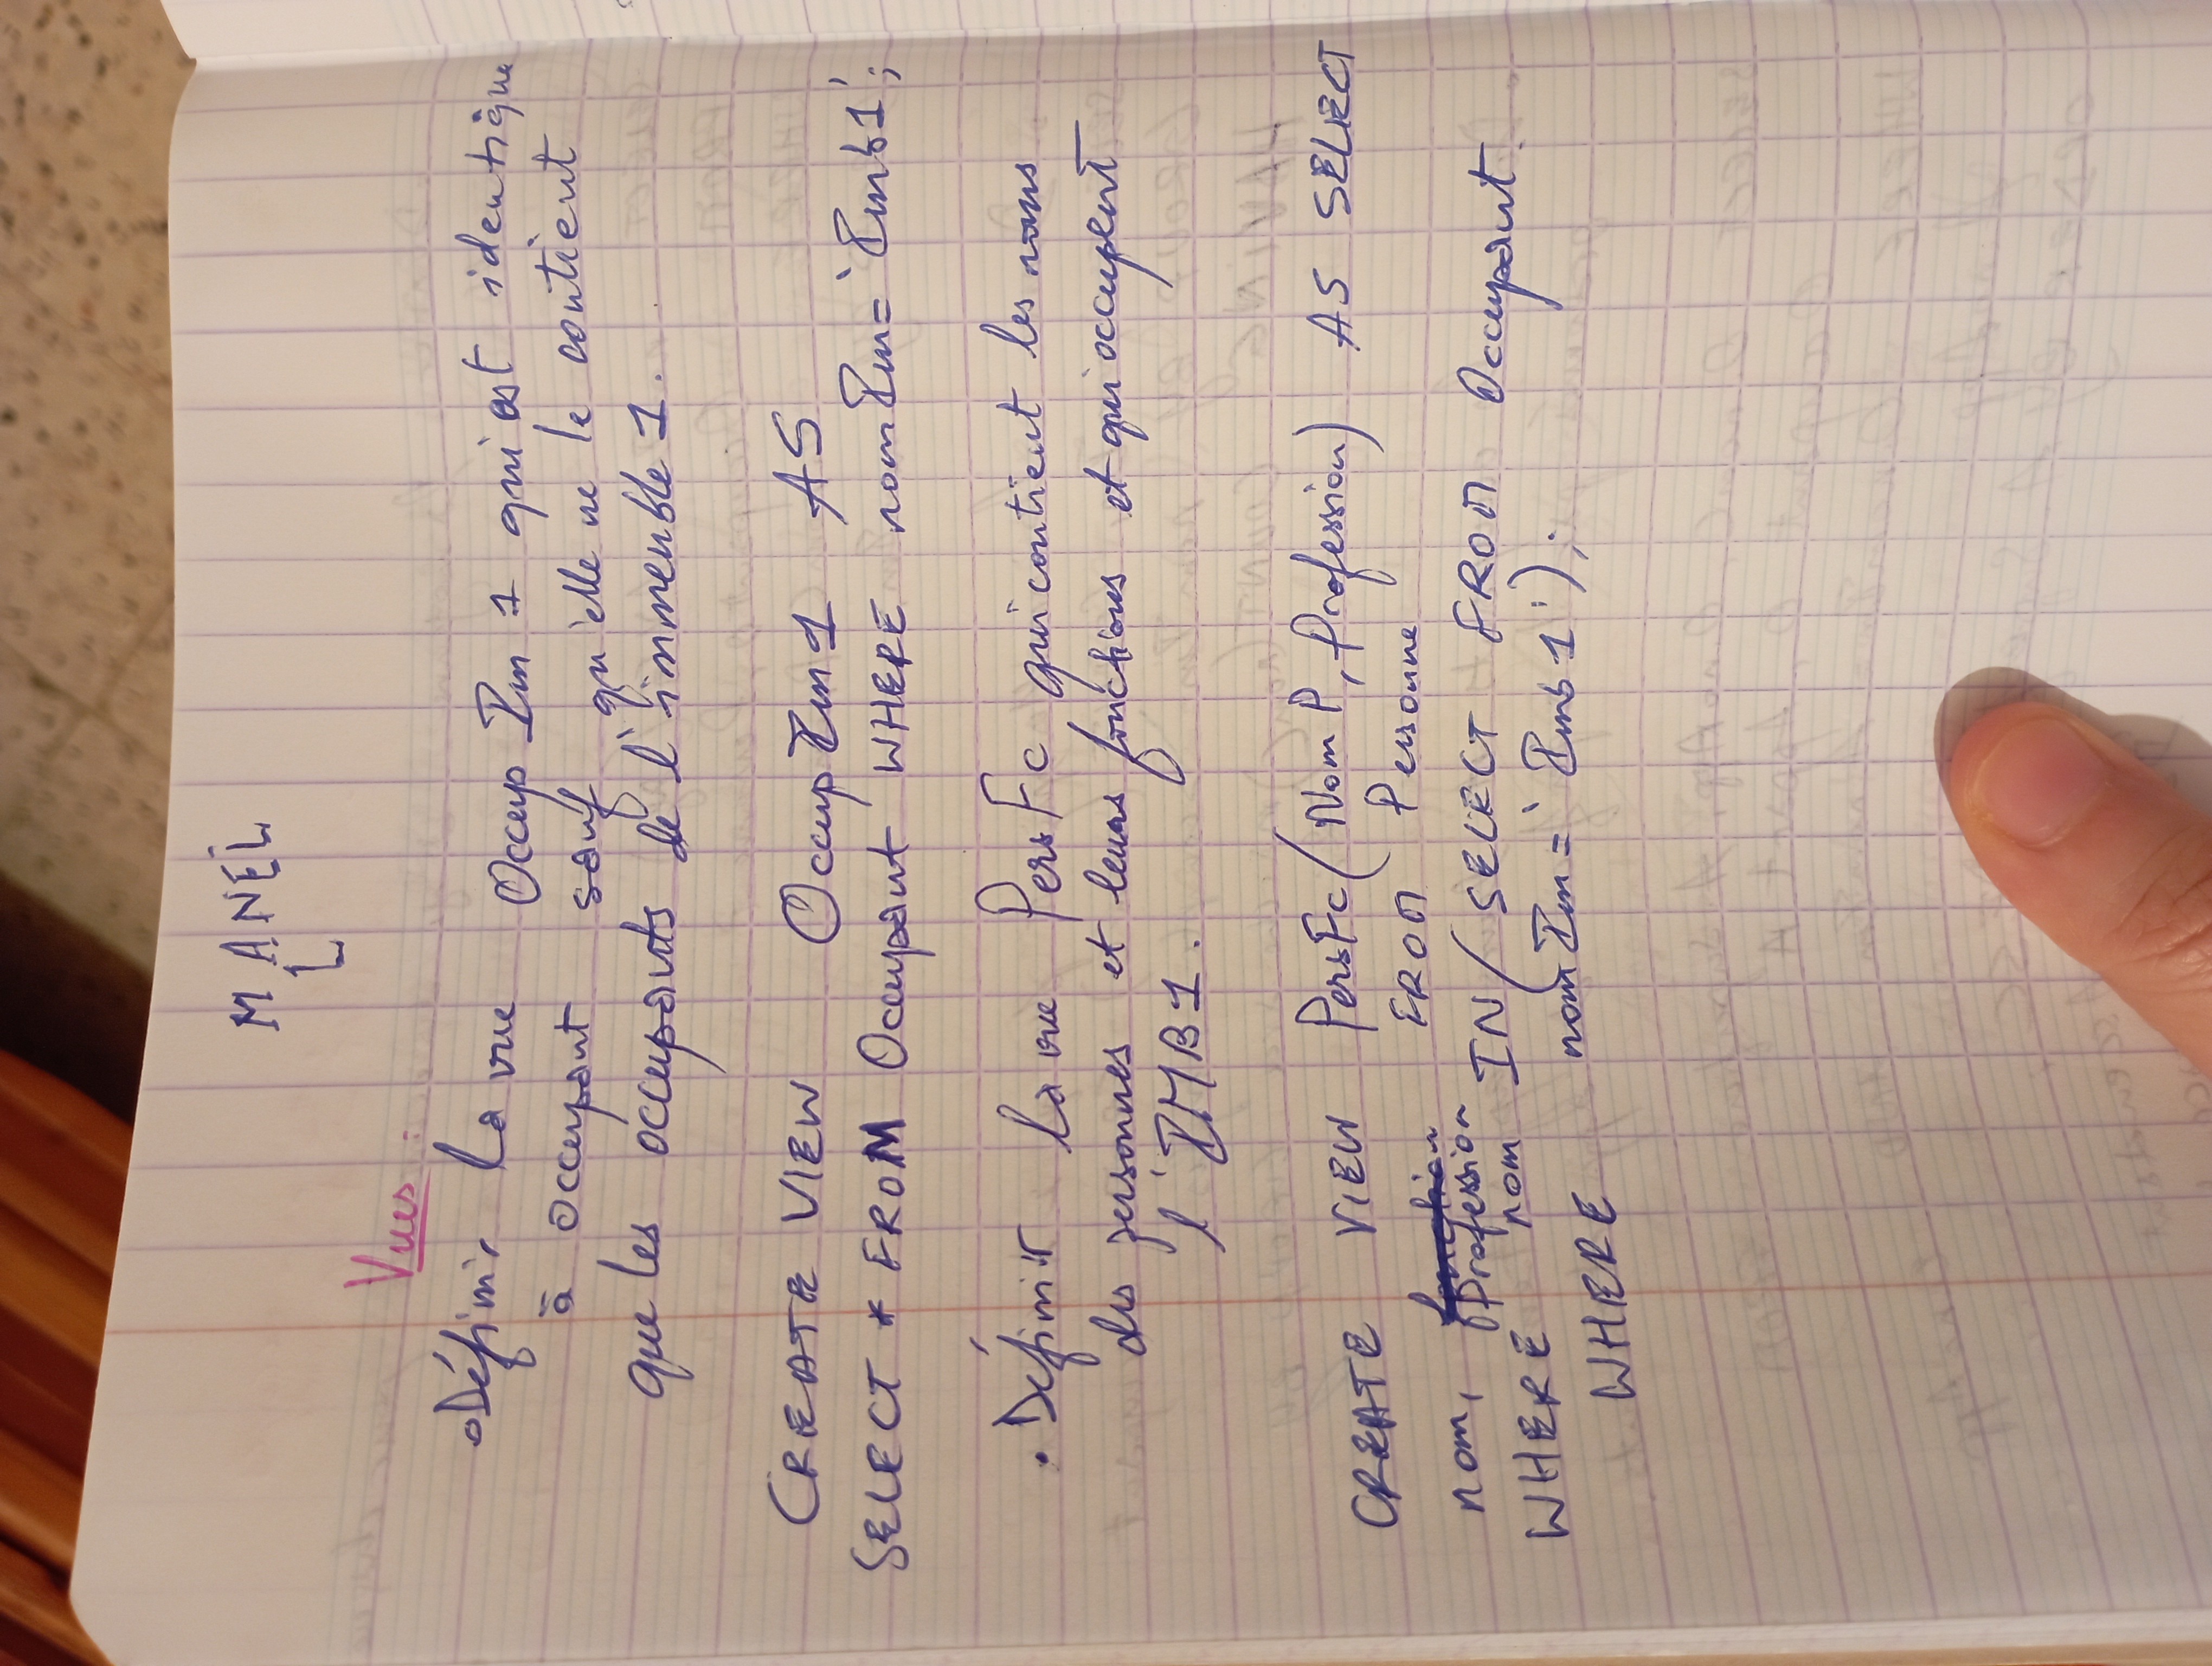 MANEL
L
Vues :
• Définir la vue Occup Im 1 qui est identique
à occupant sauf qu'elle ne le contient
que les occupants de l'immeuble 1.
CREATE VIEW Occup Im 1 AS
SELECT * FROM Occupant WHERE nom Im = 'Imb 1';
• Définir la vue Pers Fc qui contient les noms
des personnes et leurs fonctions et qui occupent
l'IMB 1.
CREATE VIEW Pers Fc (Nom P, Profession) AS SELECT
nom, Profession FROM Personne
WHERE nom IN (SELECT FROM Occupant
WHERE nom Im = 'Imb 1');